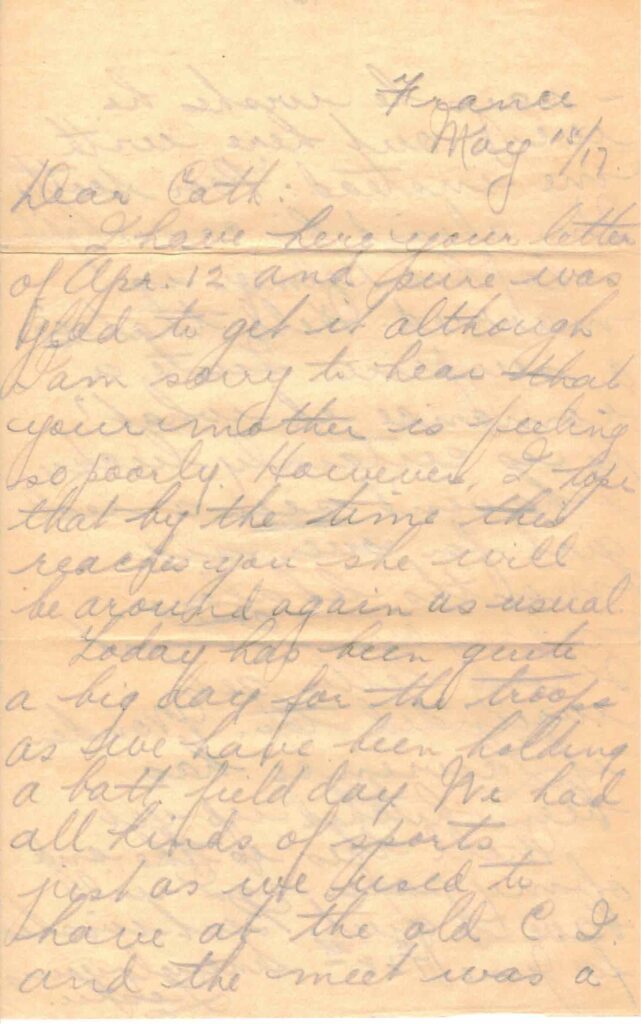 France
May 15/17.
Dear Cath:
I have here your letter
of Apr. 12 and sure was
glad to get it although
I am sorry to hear that
your mother is feeling
so poorly. However, I hope
that by the time this
reaches you she will
be around again as usual.
Today has been quite
a big day for the troops
as we have been holding
a batt. field day. We had
all kinds of sports
just as we used to
have at the old C. I.
and the meet was a